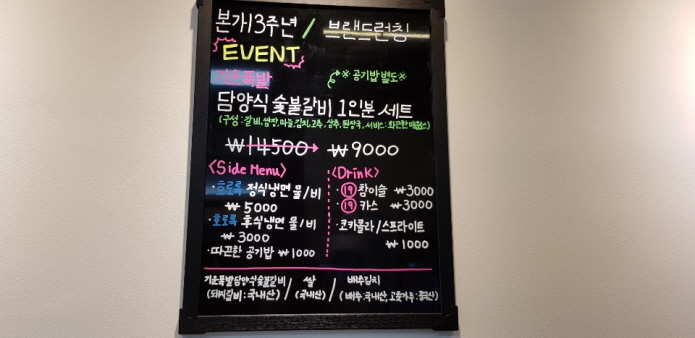 본가13주년 / 브랜드런칭
EVENT
기운폭발 ※ 공기밥 별도※
담양식 숯불갈비 1인분 세트
(구성 : 갈비, 쌈장, 마늘, 김치, 고추, 상추, 된장국, 서비스 : 화끈한
₩14500 → ₩9000
<Side Menu>
· 호로록 정식냉면 물/비
₩5000
· 호로록 후식냉면 물/비
₩3000
· 따끈한 공기밥 ₩1000
<Drink>
· 19 참이슬 ₩3000
· 19 카스 ₩3000
· 코카콜라/스프라이트
₩1000
기운폭발담양식숯불갈비 / 쌀 / 배추김치
(돼지갈비 : 국내산) / (국내산) / (배추:국내산, 고춧가루:중국산)